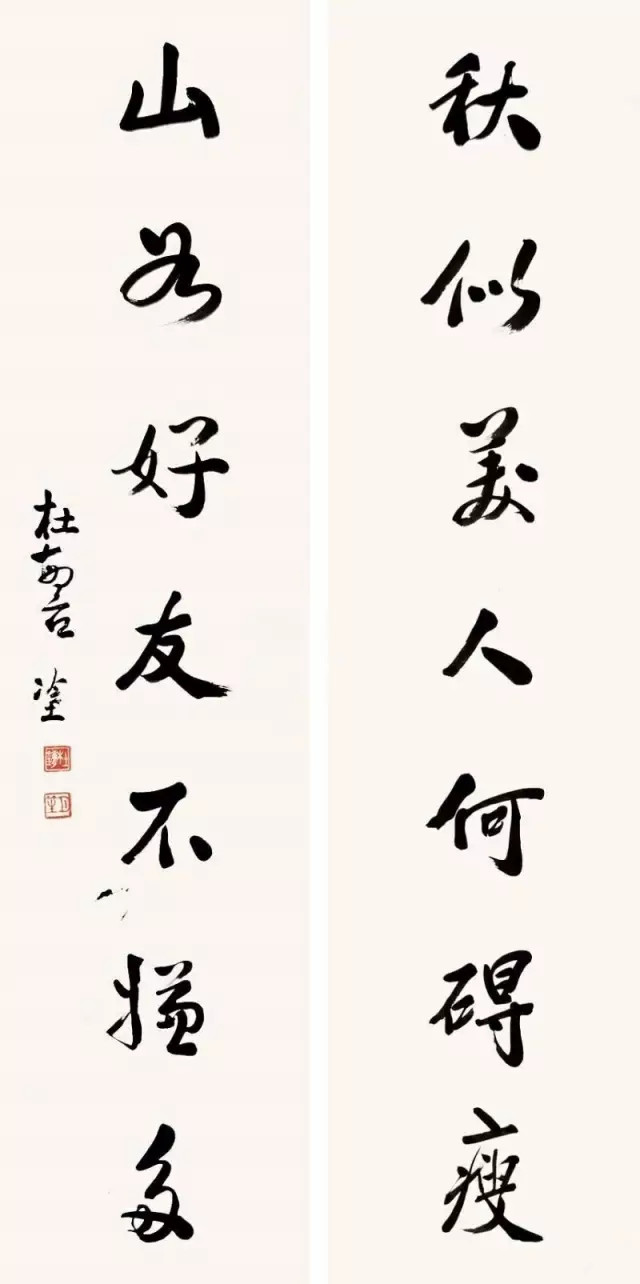 秋似美人何碍瘦
山如好友不嫌多
杜塗